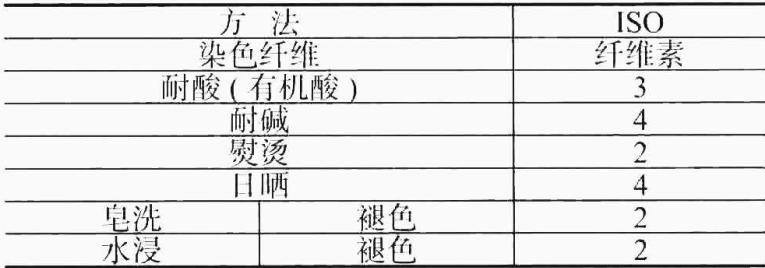 方 法 ISO
染色纤维 纤维素
耐酸(有机酸) 3
耐碱 4
熨烫 2
日晒 4
皂洗 褪色 2
水浸 褪色 2